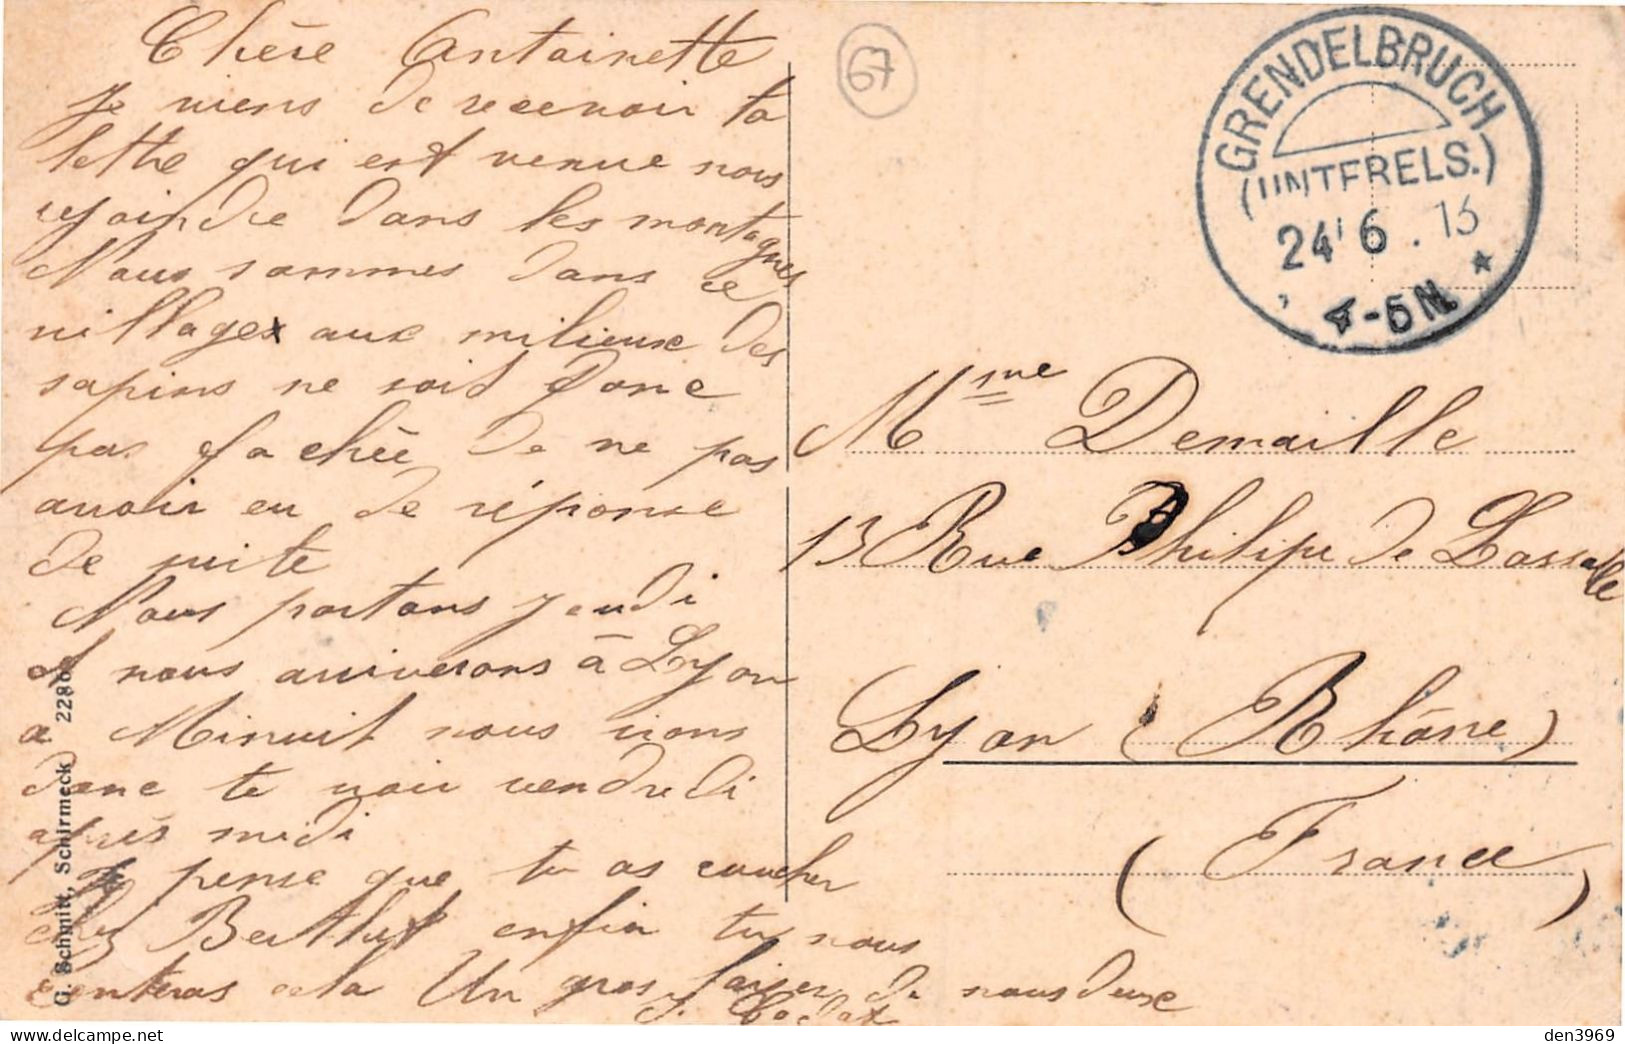 Chère Antoinette
Je viens de recevoir ta
lettre qui est venue nous
rejoindre dans les montagnes
Nous sommes dans ce
village aux milieux des
sapins ne soit Donc
pas fachée de ne pas
avoir eu de réponse
de suite
Nous partons jeudi
et nous arriverons à Lyon
a Minuit nous irons
donc te voir vendredi
après midi
Je pense que tu as coucher
chez Berthet enfin tu nous
conteras cela Un gros baiser de nous deux
G. Schmitt, Schirmeck 2286
67
GRENDELBRUCH
(UNTERELS.)
24 6 . 13
4-5N
Mme Demaille
13 Rue Philipe de Lassalle
Lyon (Rhône)
(France)
den3969